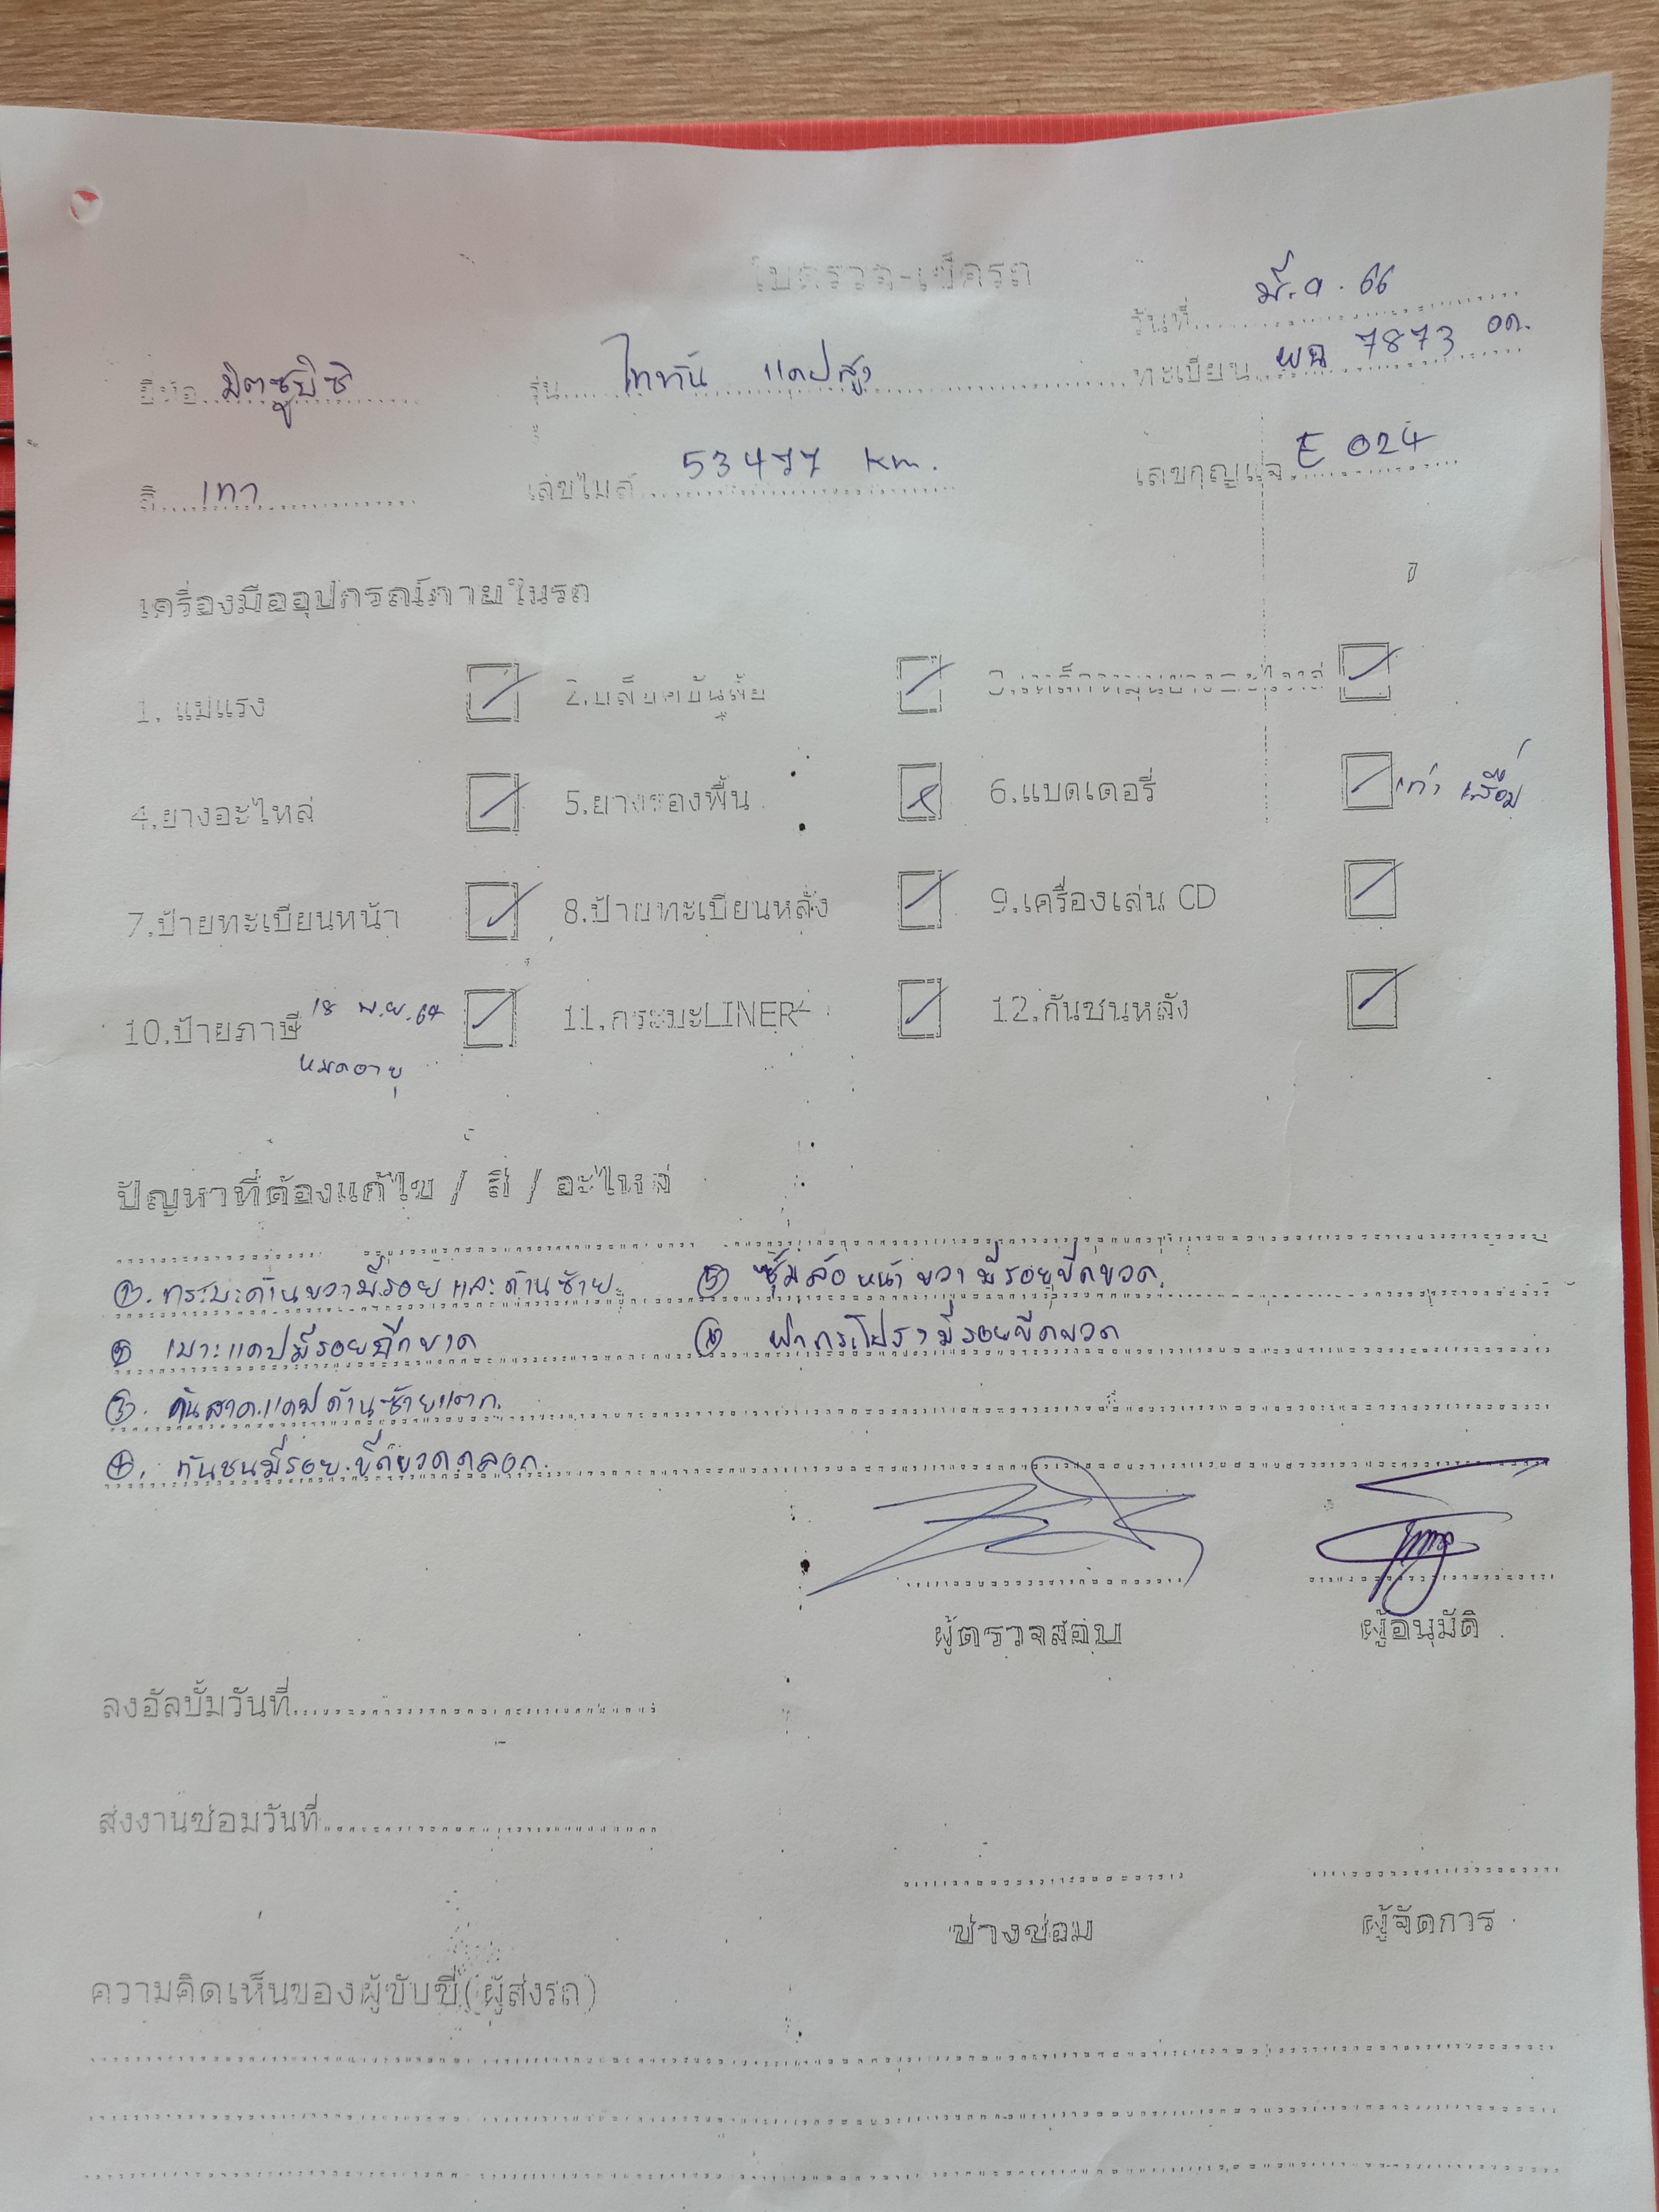 ใบตรวจ-เช็ครถ
วันที่ มี.ค. 66
ยี่ห้อ มิตซูบิซิ รุ่น ไททัน แคปสูง ทะเบียน 7873 อด.
สี เทา เลขไมล์ 53477 km. เลขกุญแจ E 024
เครื่องมืออุปกรณ์ภายในรถ
1. แม่แรง 2.บล็อคขันล้อ
4.ยางอะไหล่ 5.ยางรองพื้น 6.แบตเตอรี่ เก่า เสื่อม
7.ป้ายทะเบียนหน้า 8.ป้ายทะเบียนหลัง 9.เครื่องเล่น CD
10.ป้ายภาษี 18 พ.ย. 64 11.กระบะLINER 12.กันชนหลัง
หมดอายุ
ปัญหาที่ต้องแก้ไข / สี / อะไหล่
①. กระบะด้านขวามีรอย และด้านซ้าย ⑤ ซุ้มล้อ หน้า ขวา มีรอยขีดขวด.
② เบาะแคปมีรอยฉีกขาด ⑥ ฝากระโปรง มีรอยขีดขวด
③. กันสาด แคป ด้านซ้ายแตก.
④. กันชนมีรอย ขีดขวดถลอก.
ผู้ตรวจสอบ ผู้อนุมัติ
ลงอัลบั้มวันที่
ส่งงานซ่อมวันที่
ช่างซ่อม ผู้จัดการ
ความคิดเห็นของผู้ขับขี่(ผู้ส่งรถ)